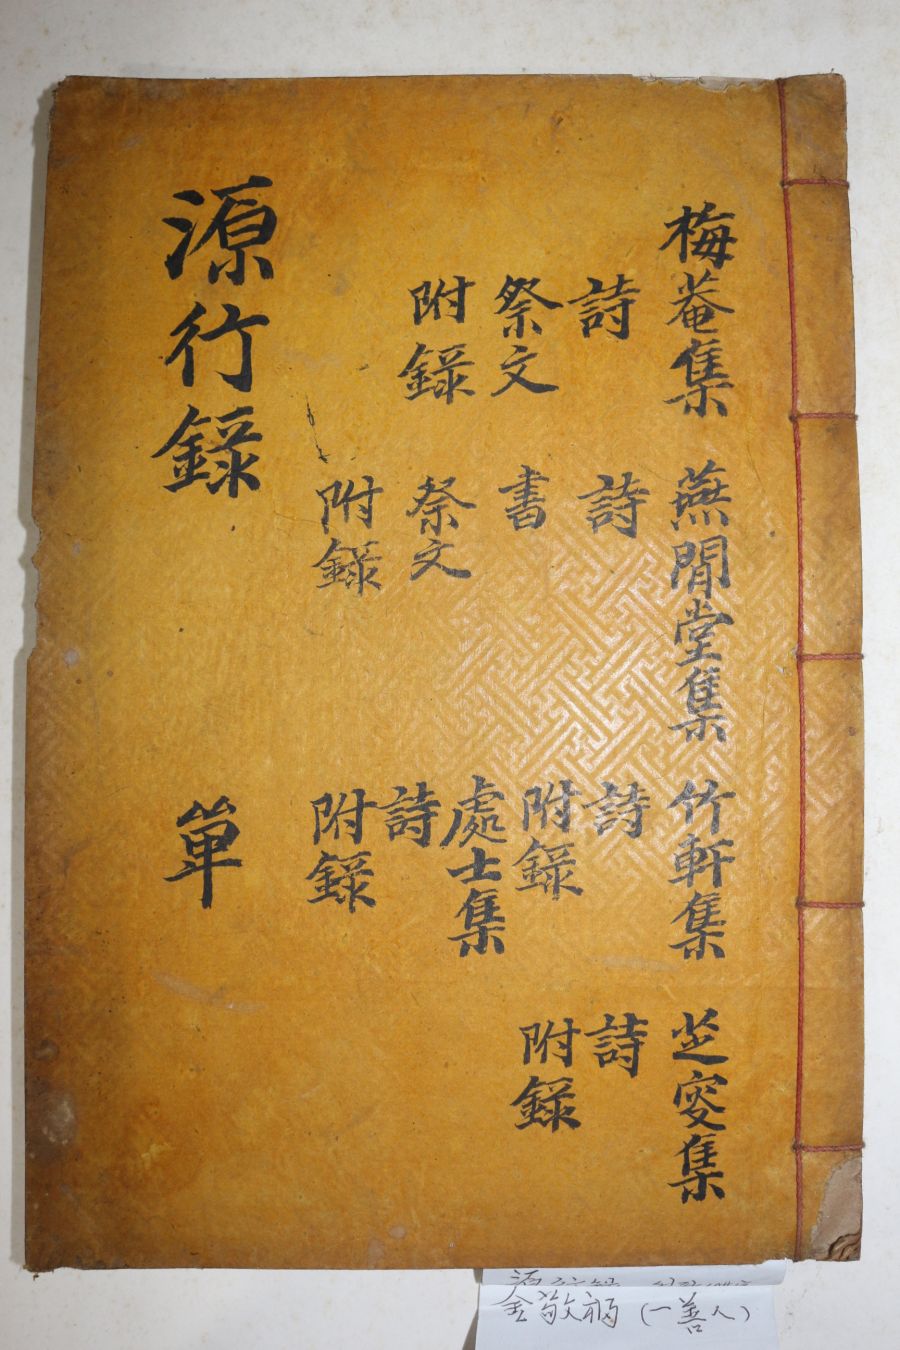 梅菴集
詩
祭文
附錄
蕪閒堂集
詩
書
祭文
附錄
竹軒集
詩
附錄
處士集
詩
附錄
芝叜集
詩
附錄
源行錄
單
金敬福(一善人)